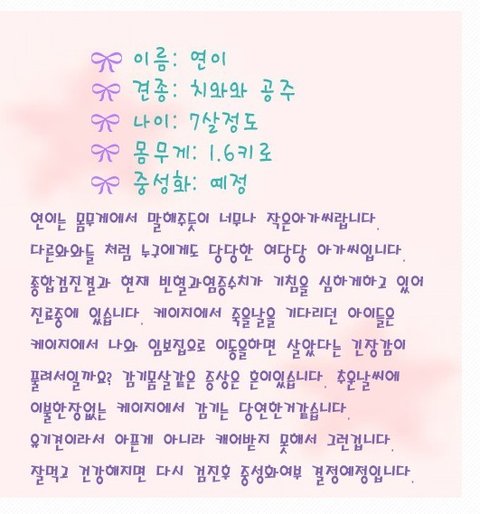 이름: 연이
견종: 치와와 공주
나이: 7살정도
몸무게: 1.6키로
중성화: 예정
연이는 몸무게에서 말해주듯이 너무나 작은아가씨랍니다.
다른와와들 처럼 누구에게도 당당한 여당당 아가씨입니다.
종합검진결과 현재 빈혈과염증수치가 기침을 심하게하고 있어
진료중에 있습니다. 케이지에서 죽을날을 기다리던 아이들은
케이지에서 나와 임보집으로 이동을하면 살았다는 긴장감이
풀려서일까요? 감기몸살같은 증상은 흔이있습니다. 추운날씨에
이불한장없는 케이지에서 감기는 당연한거같습니다.
유기견이라서 아픈게 아니라 케어받지 못해서 그런겁니다.
잘먹고 건강해지면 다시 검진후 중성화여부 결정예정입니다.